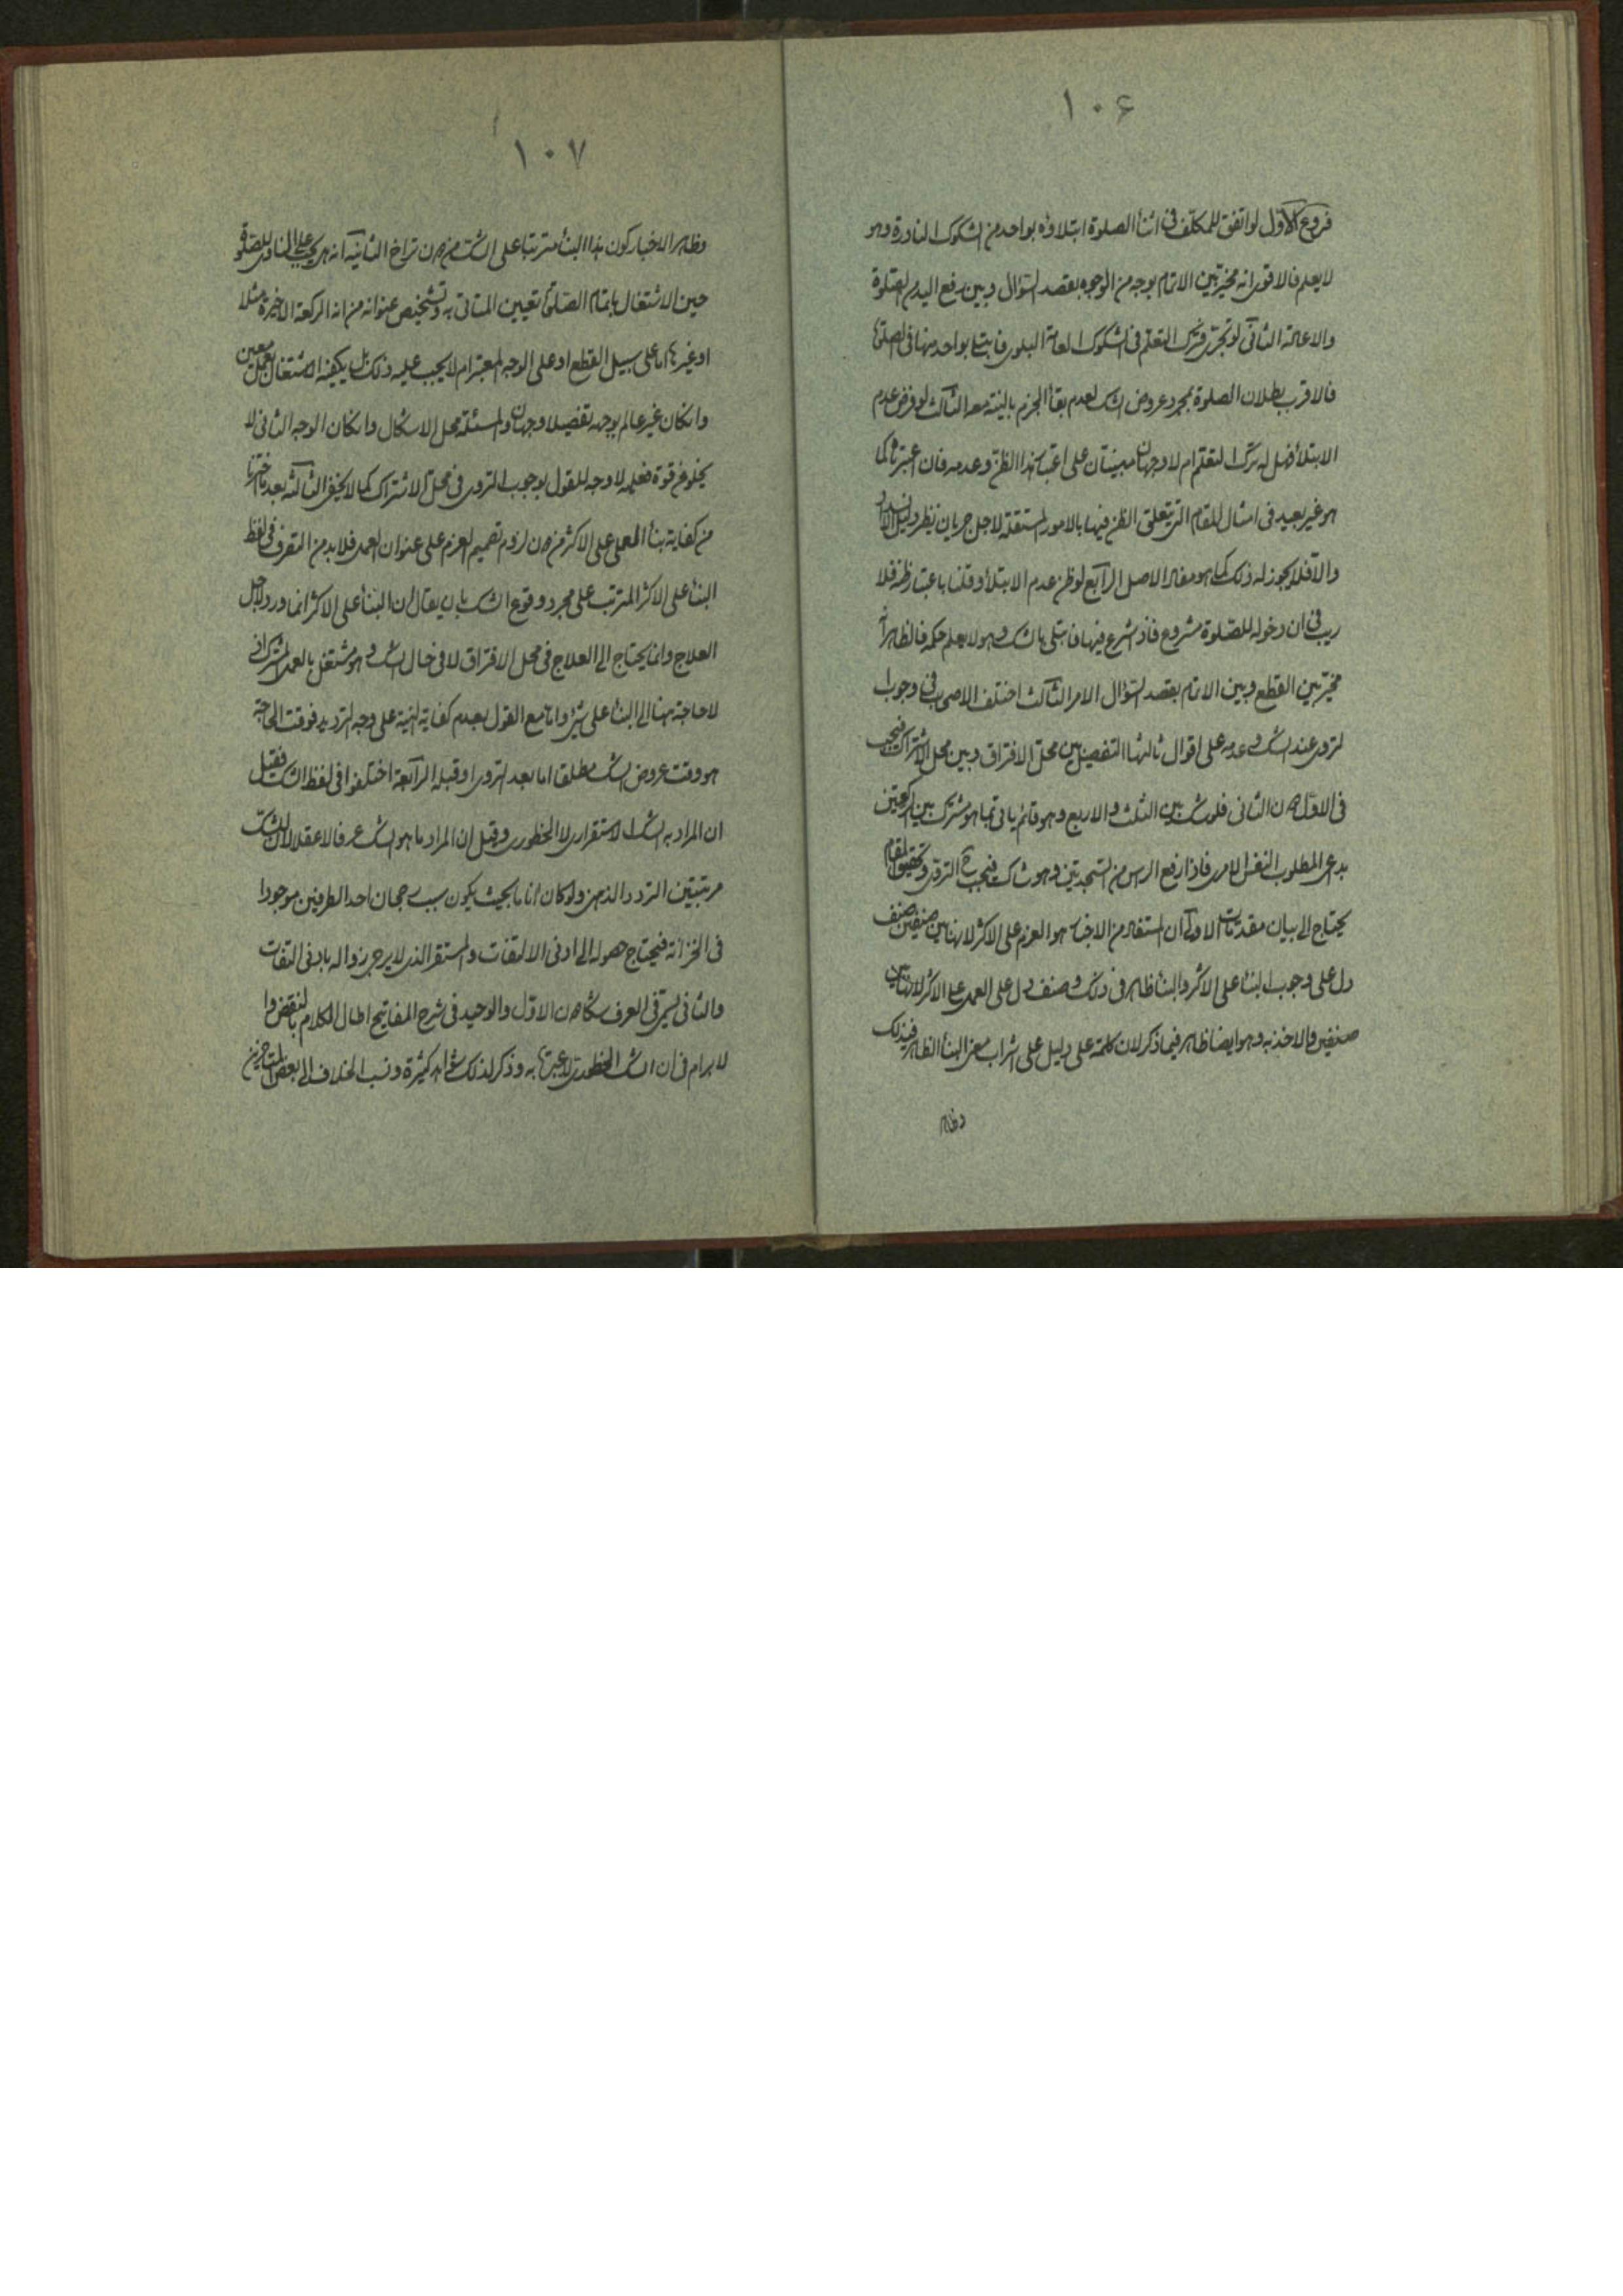 ١٠۶
فروع الاول لو اتفق للمكلف فى اثنأ الصلوة ابتلاؤه بواحد من الشكوك النادرة وهو
لا يعلم فالاقوى انه مخير بين الاتمام بوجه من الوجوه بقصد السؤال وبين رفع اليد من الصلوة
والاعادة الثانى لو تجرى وترك التعلم فى الشكوك العامة البلوى فابتلى بواحد منها فى الصلوة
فالاقرب بطلان الصلوة بمجرد عروض الشك لعدم بقأ الجزم بالنية معه الثالث لو فرض عدم
الابتلأ فهل له ترك التعلم ام لا وجهان مبنيتان على اعتبار هذا الظن وعدمه فان اعتبرناه كما
هو غير بعيد فى امثال المقام التى يتعلق الظن فيها بالامور المستقبلة لاجل جريان نظير دليل الانسداد
والا فلا يجوز له ذلك كما هو مفاد الاصل الرابع لو ظن عدم الابتلأ وقلنا باعتبار ظنه فلا
ريب فى ان دخوله للصلوة مشروع فاذا شرع فيها فابتلى بالشك وهو لا يعلم حكمه فالظاهر انه
مخير بين القطع وبين الاتمام بقصد السؤال الامر الثالث اختلف الاصحاب فى وجوب
التروى عند الشك وعدمه على اقوال ثالثها التفصيل بين محل الافتراق وبين محل الاشتراك فيجب
فى الاول دون الثانى فلو شك بين الثلث والاربع وهو قائم ياتى بما هو مشترك بين الركعتين
بداعى المطلوب النفس الامرى فاذا رفع الراس من السجدتين وهو شاك فيجب ح التروى وتحقيق المقام
يحتاج الى بيان مقدمات الاولى ان المستفاد من الاخبار هو العزم على الاكثر لانها بين صنفين صنف
دل على وجوب البنأ على الاكثر والبنأ ظاهر فى ذلك وصنف دل على العمل على الاكثر لانها بين
صنفين والاخذ به وهو ايضا ظاهر فيما ذكر لان كلمة على دليل على اشراب معنى البنأ الظاهر فى ذلك
وظاهر
١٠٧
وظاهر الاخبار كون هذا البنأ مترتبا على الشك من دون تراخ الثانية انه هل يجب على الناوى للصلوة
حين الاشتغال باتمام الصلوة تعيين الماتى به وتشخيص عنوانه من انه الركعة الاخيرة مثلا
او غيرها اما على سبيل القطع او على الوجه المعتبر ام لا يجب عليه ذلك بل يكفيه الاشتغال بعمل معين
وان كان غير عالم بوجهه تفصيلا وجهان والمسئلة محل الاشكال وان كان الوجه الثانى لا
يخلو عن قوة فعليه لا وجه للقول بوجوب التروى فى محل الاشتراك كما لا يخفى الثالثة بعد ما اخترنا
من كفاية بنأ المصلى على الاكثر من دون لزوم تصميم العزم على عنوان العمل فلا بد من التصرف فى لفظ
البنأ على الاكثر المترتب على مجرد وقوع الشك بان يقال ان البنأ على الاكثر انما ورد لاجل
العلاج وانما يحتاج الى العلاج فى محل الافتراق لا فى حال الشك وهو مشتغل بالعمل المشترك اذ
لا حاجة هنا الى البنأ على شئ واما مع القول بعدم كفاية النية على وجه الترديد فوقت الحاجة
هو وقت عروض الشك مطلقا اما بعد التروى او قبله الرابعة اختلفوا فى لفظ الشك فقيل
ان المراد به الشك الاستقرارى لا الخطورى وقيل ان المراد ما هو الشك عرفا لا عقلا لان للشك
مرتبتين التردد الذهنى ولو كان انا ما بحيث يكون سبب رجحان احد الطرفين موجودا
فى الخزانة فيحتاج حصوله الى ادنى الالتفات والمستقر الذى لا يرجى زواله بادنى التفات
والثانى يسمى فى العرف شكا دون الاول والوحيد فى شرح المفاتيح اطال الكلام بالنقض وا
لابرام فى ان الشك الخطورى لا عبرة به وذكر لذلك شواهد كثيرة ونسب الخلاف الى بعض المتاخرين